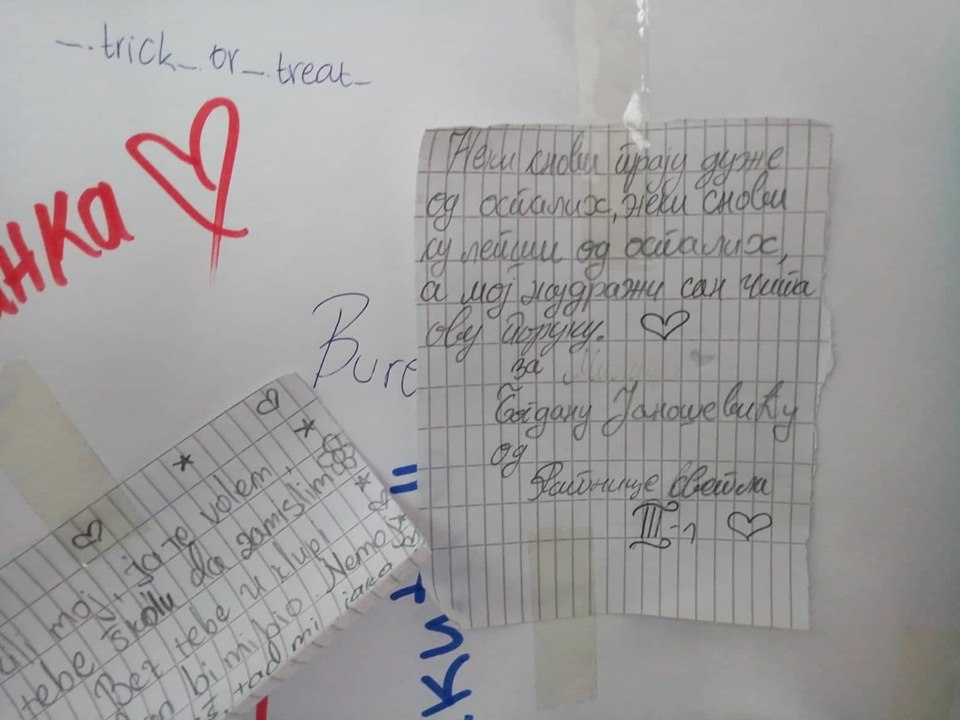 _.trick_or_.treat_
анка
Неки снови трају дуже
од осталих, неки снови
су лепши од осталих,
а мој најдражи сан чита
ову поруку. ♡
за
Богдану Јаношевићу
од
Ратнице светла
III-1 ♡
Bure
=
moj, ja te volem,
tebe školu da zamislim
Bez tebe u klupi
bi mi bio. Nemo
tad mi jako